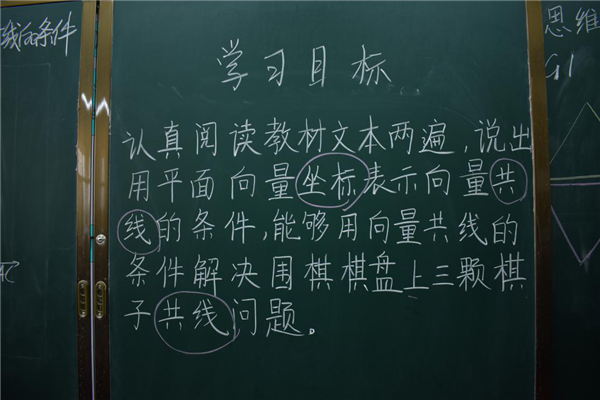 线的条件
学习目标
认真阅读教材文本两遍,说出
用平面向量坐标表示向量共
线的条件,能够用向量共线的
条件解决围棋棋盘上三颗棋
子共线问题。
思维
G1